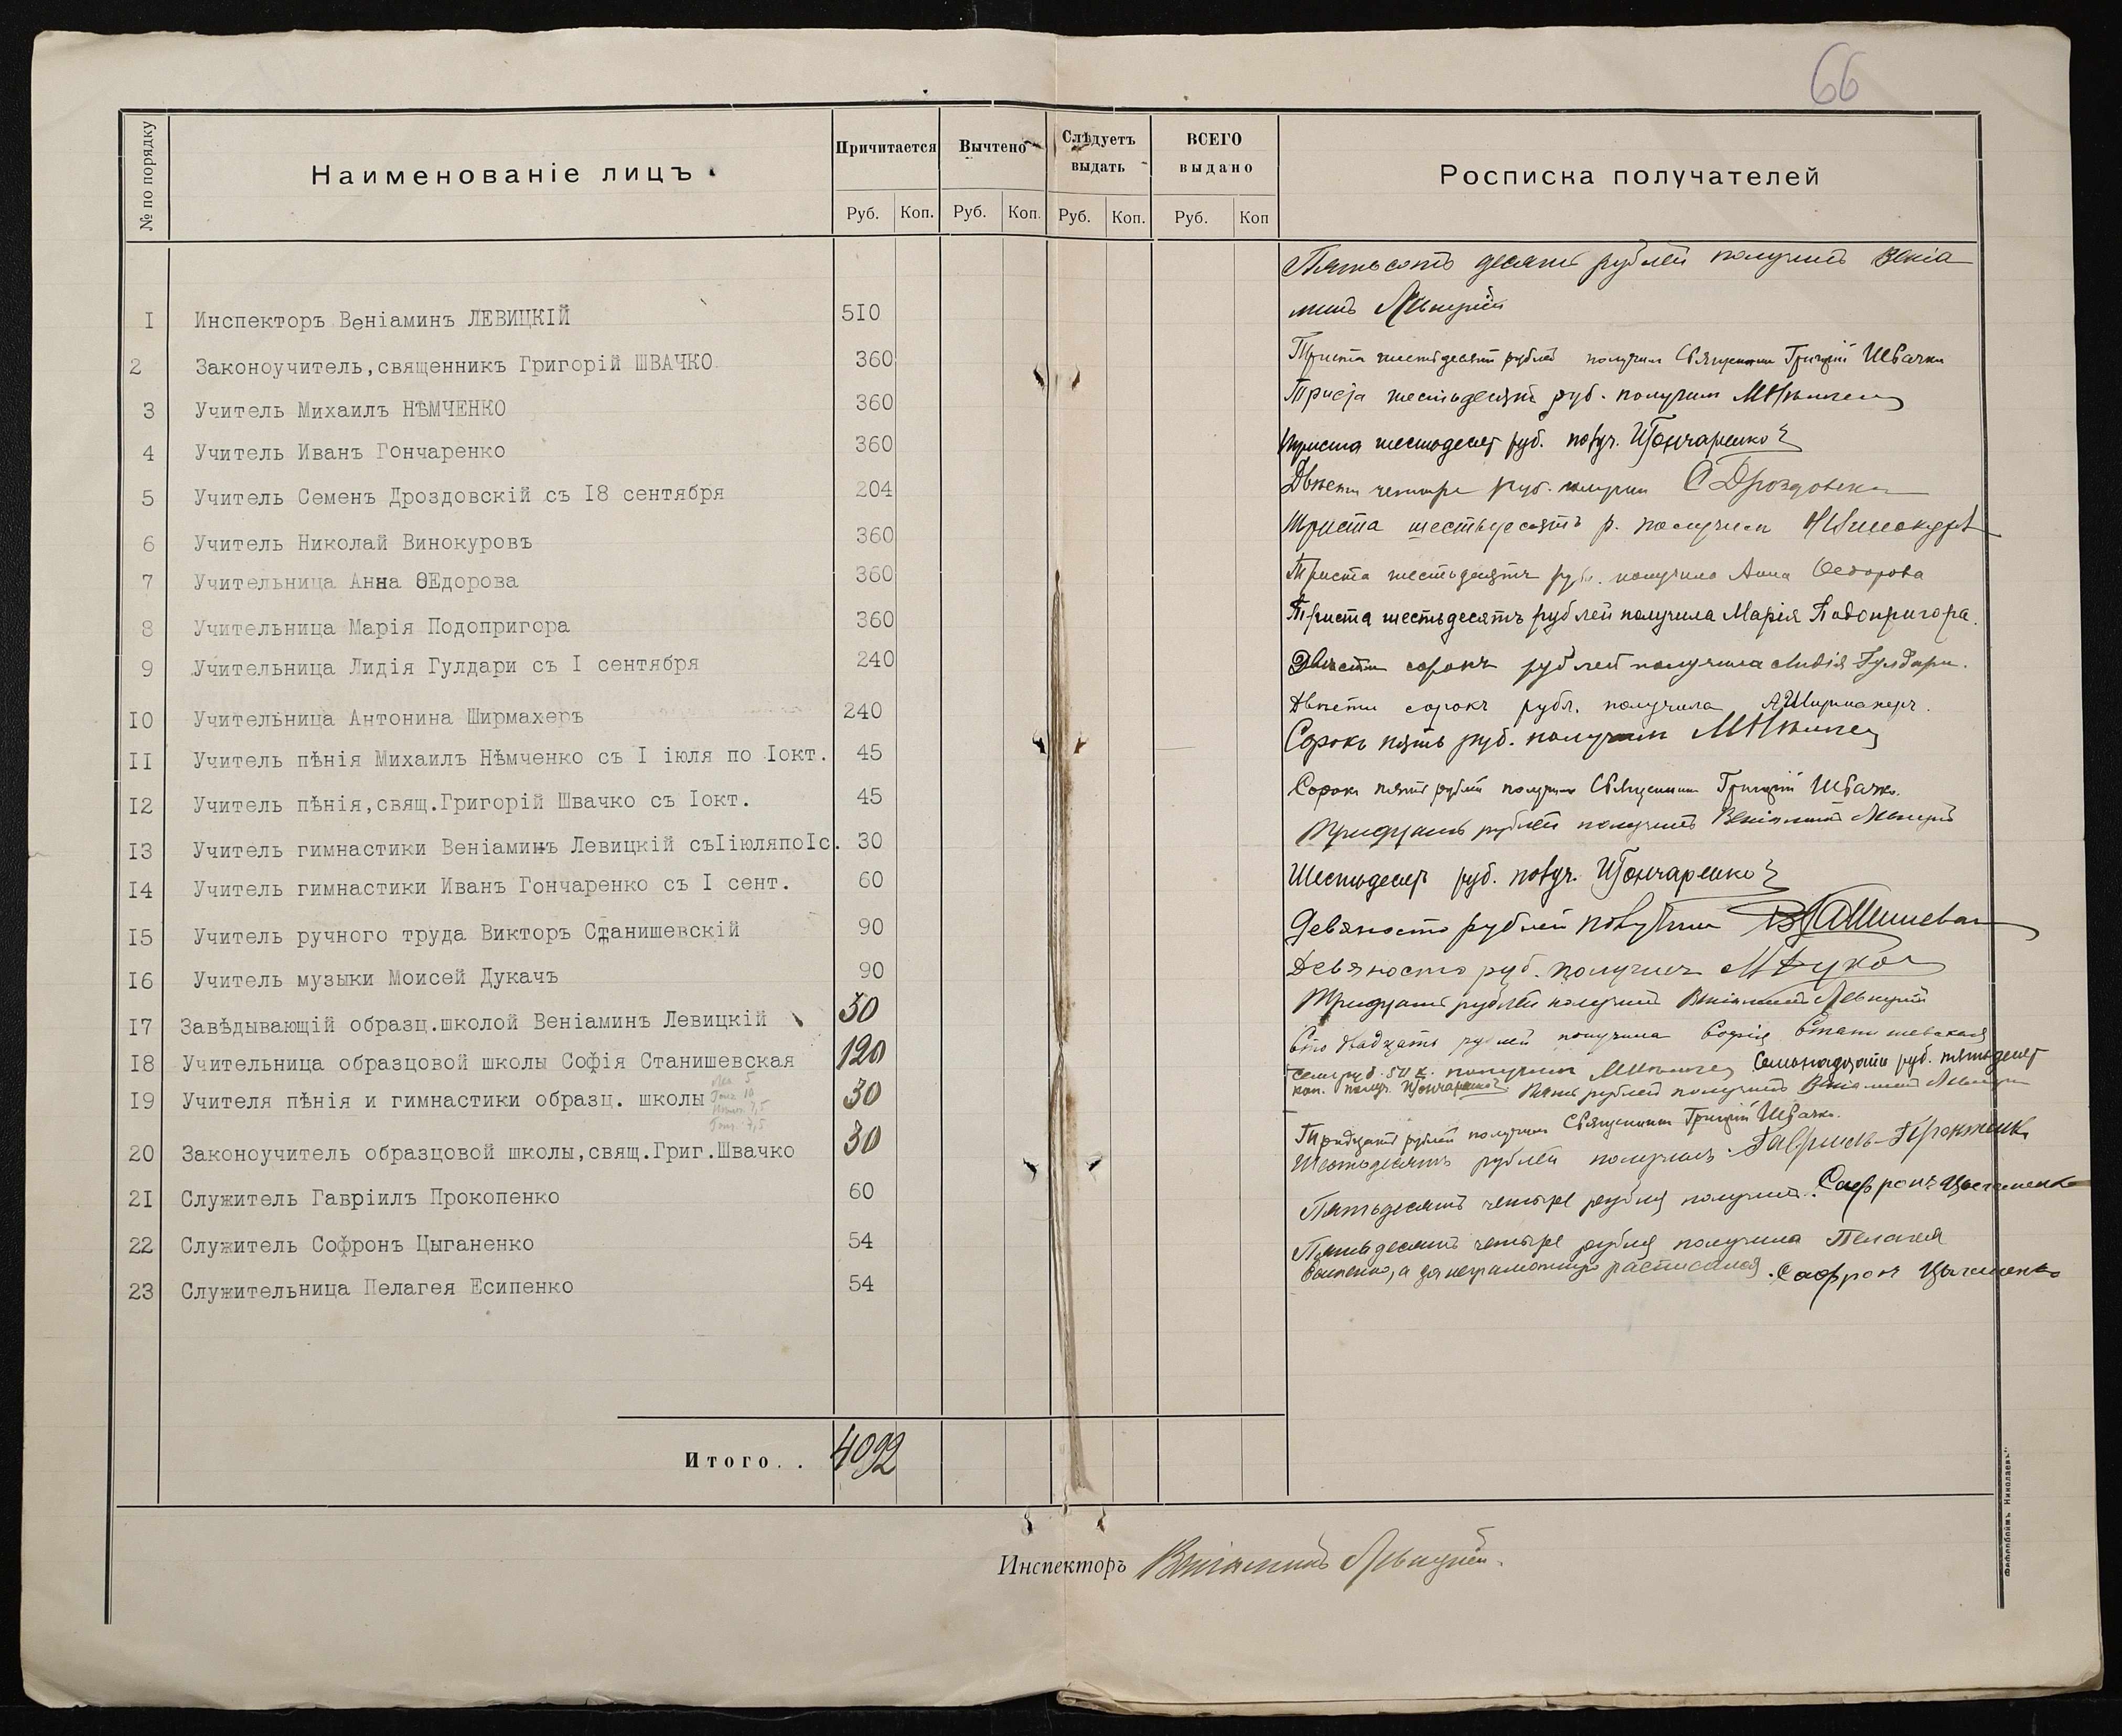 66
№ по порядку
Наименованіе лицъ
Причитается
Вычтено
Слѣдуетъ выдать
ВСЕГО выдано
Росписка получателей
Руб. Коп. Руб. Коп. Руб. Коп. Руб. Коп
Пятьсотъ десять рублей получилъ Веніа
I Инспекторъ Веніаминъ ЛЕВИЦКІЙ 5I0 минъ Левицкій
2 Законоучитель,священникъ Григорій ШВАЧКО 360 Триста шестьдесятъ рублей получилъ Священникъ Григорій Швачко
3 Учитель Михаилъ НѢМЧЕНКО 360 Триста шестьдесятъ руб. получилъ МНѣмченко
4 Учитель Иванъ Гончаренко 360 Триста шестьдесят руб. получ. ИГончаренко
5 Учитель Семенъ Дроздовскій съ I8 сентября 204 Двѣсти четыре руб. получилъ С Дроздовскій
6 Учитель Николай Винокуровъ 360 Триста шестьдесятъ р. получилъ НВинокуровъ
7 Учительница Анна ѲЕдорова 360 Триста шестьдесятъ руб. получила Анна Ѳедорова
8 Учительница Марія Подопригора 360 Триста шестьдесятъ рублей получила Марія Подопригора.
9 Учительница Лидія Гулдари съ I сентября 240 Двѣсти сорокъ рублей получила Лидія Гулдари.
I0 Учительница Антонина Ширмахеръ 240 Двѣсти сорокъ рубл. получила АШирмахеръ.
II Учитель пѣнія Михаилъ Нѣмченко съ I іюля по Iокт. 45 Сорокъ пять руб. получилъ МНѣмченко
I2 Учитель пѣнія,свящ.Григорій Швачко съ Iокт. 45 Сорокъ пять рублей получилъ Священникъ Григорій Швачко.
I3 Учитель гимнастики Веніаминъ Левицкій съIіюляпоIс. 30 Тридцать рублей получилъ Веніаминъ Левицкій
I4 Учитель гимнастики Иванъ Гончаренко съ I сент. 60 Шестьдесят руб. получ. ИГончаренко
I5 Учитель ручного труда Викторъ Станишевскій 90 Девяносто рублей получилъ
I6 Учитель музыки Моисей Дукачъ 90 Девяносто руб. получилъ МДукачъ
I7 Завѣдывающій образц.школой Веніаминъ Левицкій 30 Тридцать рублей получилъ Веніаминъ Левицкій
I8 Учительница образцовой школы Софія Станишевская 120 Сто двадцать рублей получила Софія Станишевская
I9 Учителя пѣнія и гимнастики образц. школы 30 Семь руб. 50 к. получилъ МНѣмченко Семьнадцать руб. пятьдесят
коп. получ. ИГончаренко. Пять рублей получилъ Веніаминъ Левицкій
20 Законоучитель образцовой школы,свящ.Григ.Швачко 30 Тридцать рублей получилъ Священникъ Григорій Швачко.
2I Служитель Гавріилъ Прокопенко 60 Шестьдесятъ рублей получилъ. Гавриилъ Прокопенко
22 Служитель Софронъ Цыганенко 54 Пятьдесятъ четыре рубля получилъ. Сафронъ Цыганенко
23 Служительница Пелагея Есипенко 54 Пятьдесятъ четыре рубля получила Пелагея
Есипенко, а за неграмотную расписался. Сафрон Цыганенко
Итого. . 4092
Инспекторъ Веніаминъ Левицкій.